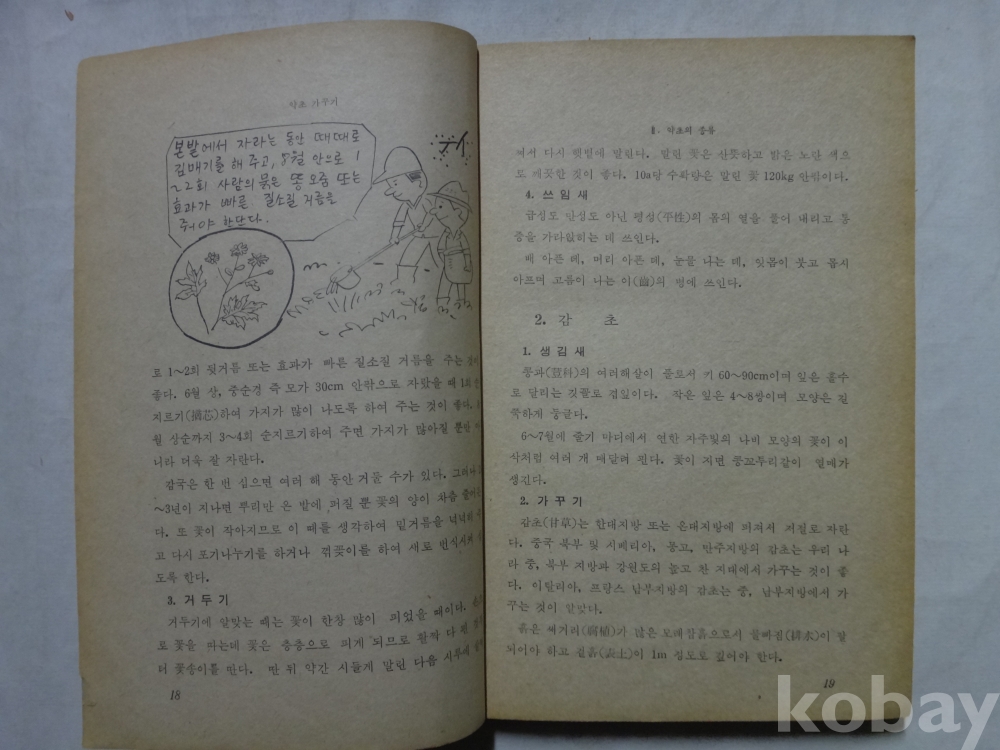 약초 가꾸기
본밭에서 자라는 동안 때때로
김매기를 해 주고, 8월 안으로 1
~2회 사람의 묽은 똥오줌 또는
효과가 빠른 질소질 거름을
줘야 한단다.
로 1～2회 뒷거름 또는 효과가 빠른 질소질 거름을 주는
좋다. 6월 상, 중순경 즉 모가 30cm 안팎으로 자랐을 때 1회
지르기(摘芯)하여 가지가 많이 나도록 하여 주는 것이 좋다.
월 상순까지 3～4회 순지르기하여 주면 가지가 많아질 뿐만
니라 더욱 잘 자란다.
감국은 한 번 심으면 여러 해 동안 거둘 수가 있다. 그러나
～3년이 지나면 뿌리만 온 밭에 퍼질 뿐 꽃의 양이 차츰
다. 또 꽃이 작아지므로 이 때를 생각하여 밑거름을 넉넉히
고 다시 포기나누기를 하거나 꺾꽂이를 하여 새로 번식시켜
도록 한다.
3. 거두기
거두기에 알맞는 때는 꽃이 한창 많이 피었을 때이다.
로 꽃을 따는데 꽃은 층층으로 피게 되므로 활짝 다 핀
더 꽃송이를 딴다. 딴 뒤 약간 시들게 말린 다음 시루에
18
Ⅱ. 약초의 종류
쪄서 다시 햇볕에 말린다. 말린 꽃은 산뜻하고 밝은 노란 색으
로 깨끗한 것이 좋다. 10a당 수확량은 말린 꽃 120kg 안팎이다.
4. 쓰임새
급성도 만성도 아닌 평성(平性)의 몸의 열을 풀어 내리고 통
증을 가라앉히는 데 쓰인다.
배 아픈 데, 머리 아픈 데, 눈물 나는 데, 잇몸이 붓고 몹시
아프며 고름이 나는 이(齒)의 병에 쓰인다.
2. 감 초
1. 생김새
콩과(荳科)의 여러해살이 풀로서 키 60～90cm이며 잎은 홀수
로 달리는 것꼴로 겹잎이다. 작은 잎은 4～8쌍이며 모양은 길
쭉하게 둥글다.
6～7월에 줄기 마디에서 연한 자주빛의 나비 모양의 꽃이 이
삭처럼 여러 개 매달려 핀다. 꽃이 지면 콩꼬투리같이 열매가
생긴다.
2. 가꾸기
감초(甘草)는 한대지방 또는 온대지방에 퍼져서 저절로 자란
다. 중국 북부 및 시베리아, 몽고, 만주지방의 감초는 우리 나
라 중, 북부 지방과 강원도의 높고 찬 지대에서 가꾸는 것이 좋
다. 이탈리아, 프랑스 남부지방의 감초는 중, 남부지방에서 가
꾸는 것이 알맞다.
흙은 썩거리(腐植)가 많은 모래참흙으로서 물빠짐(排水)이 잘
되어야 하고 겉흙(表土)이 1m 정도로 깊어야 한다.
19
kobay